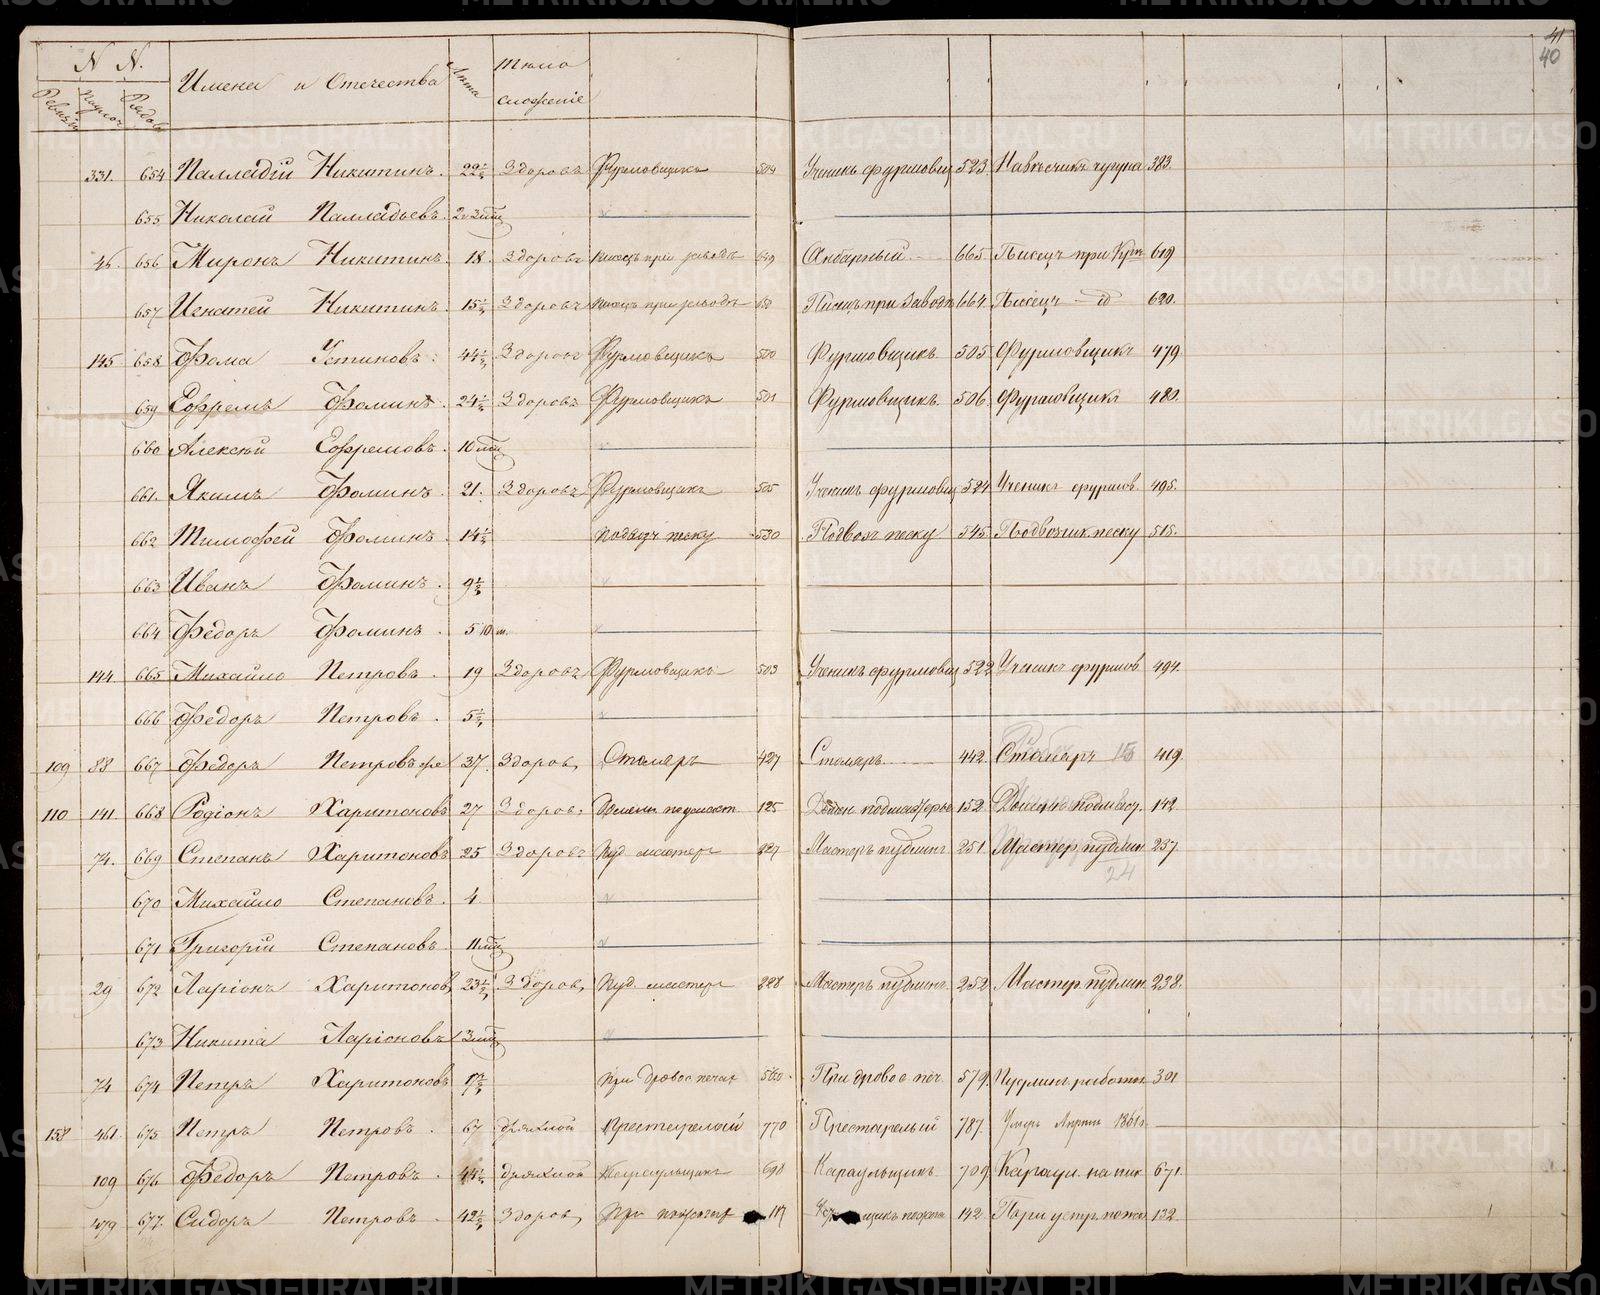 41
40
N N.
Имена и Отечества Лѣта Тѣло
сложеніе
Ревизіи Рядовъ
331. 654 Палладій Никитинъ. 22½ Здоровъ Фурмовщикъ 504 Ученикъ фурмовщ 523 383.
655 Николай Палладьевъ. 2.
46. 656 Миронъ Никитинъ. 18. Здоровъ писецъ при заводѣ 649 Анбарный 665 Писецъ при 619
657 Игнатей Никитинъ. 15½ Здоровъ писецъ при заводѣ 650 Писецъ при Заводѣ 664 Писецъ 620.
145 658 Фома Устиновъ. 44½ Здоровъ Фурмовщикъ 500 Фурмовщикъ. 505 Фурмовщикъ 479.
659 Ефремъ Фоминъ. 24½ Здоровъ Фурмовщикъ 501 Фурмовщикъ. 506 Фурмовщикъ 480.
660 Алексѣй Ефремовъ. 10 мѣц
661. Якимъ Фоминъ. 21. Здоровъ Фурмовщикъ 505 Ученикъ фурмовщ 524 Ученикъ фурмов. 495.
662 Тимофей Фоминъ. 14½ подвозч песку 530 Подвозч песку 545 Подвозчик песку 515.
663 Иванъ Фоминъ. 9½
664 Федоръ Фоминъ. 5 10 м.
144 665 Михайло Петровъ. 19 Здоровъ Фурмовщикъ 503 Ученикъ фурмовщ 522 Ученикъ фурмов 494.
666 Федоръ Петровъ. 5½
109 88 667 Федоръ Петровъ же 37. Здоров. Столяръ 427 Столяръ 442 Столяръ 419.
110 141 668 Родіонъ Харитоновъ 27 Здоров. 125 152 142
74. 669 Степанъ Харитоновъ 25 Здоровъ Пуд. мастеръ 227 Мастеръ пудлинг 251 Мастеръ пудлин 237.
24
670 Михайло Степановъ. 4
671 Григорій Степановъ 11 мѣц
29 672 Ларіонъ Харитоновъ 23½ Здоров. Пуд. мастеръ 228 Мастеръ пудлинг. 252 Мастер пудлин 238.
673 Никита Ларіоновъ 3 мѣц
74 674 Петръ Харитоновъ 17½ при дровос печах 560 При дровос печ. 579 Пудлинг работн 301
158 461. 675 Петръ Петровъ. 67 дряхлой Престарелой 770 Престарелый 787. Умеръ 1861г.
109 676 Федоръ Петровъ. 44½ дряхлой Караульщикъ 698 Караульщикъ. 709. Караул. 671.
479 677. Сидоръ Петровъ. 42½ Здоров. При 117 142 При устр. 132.
METRIKI.GASO-URAL.RU